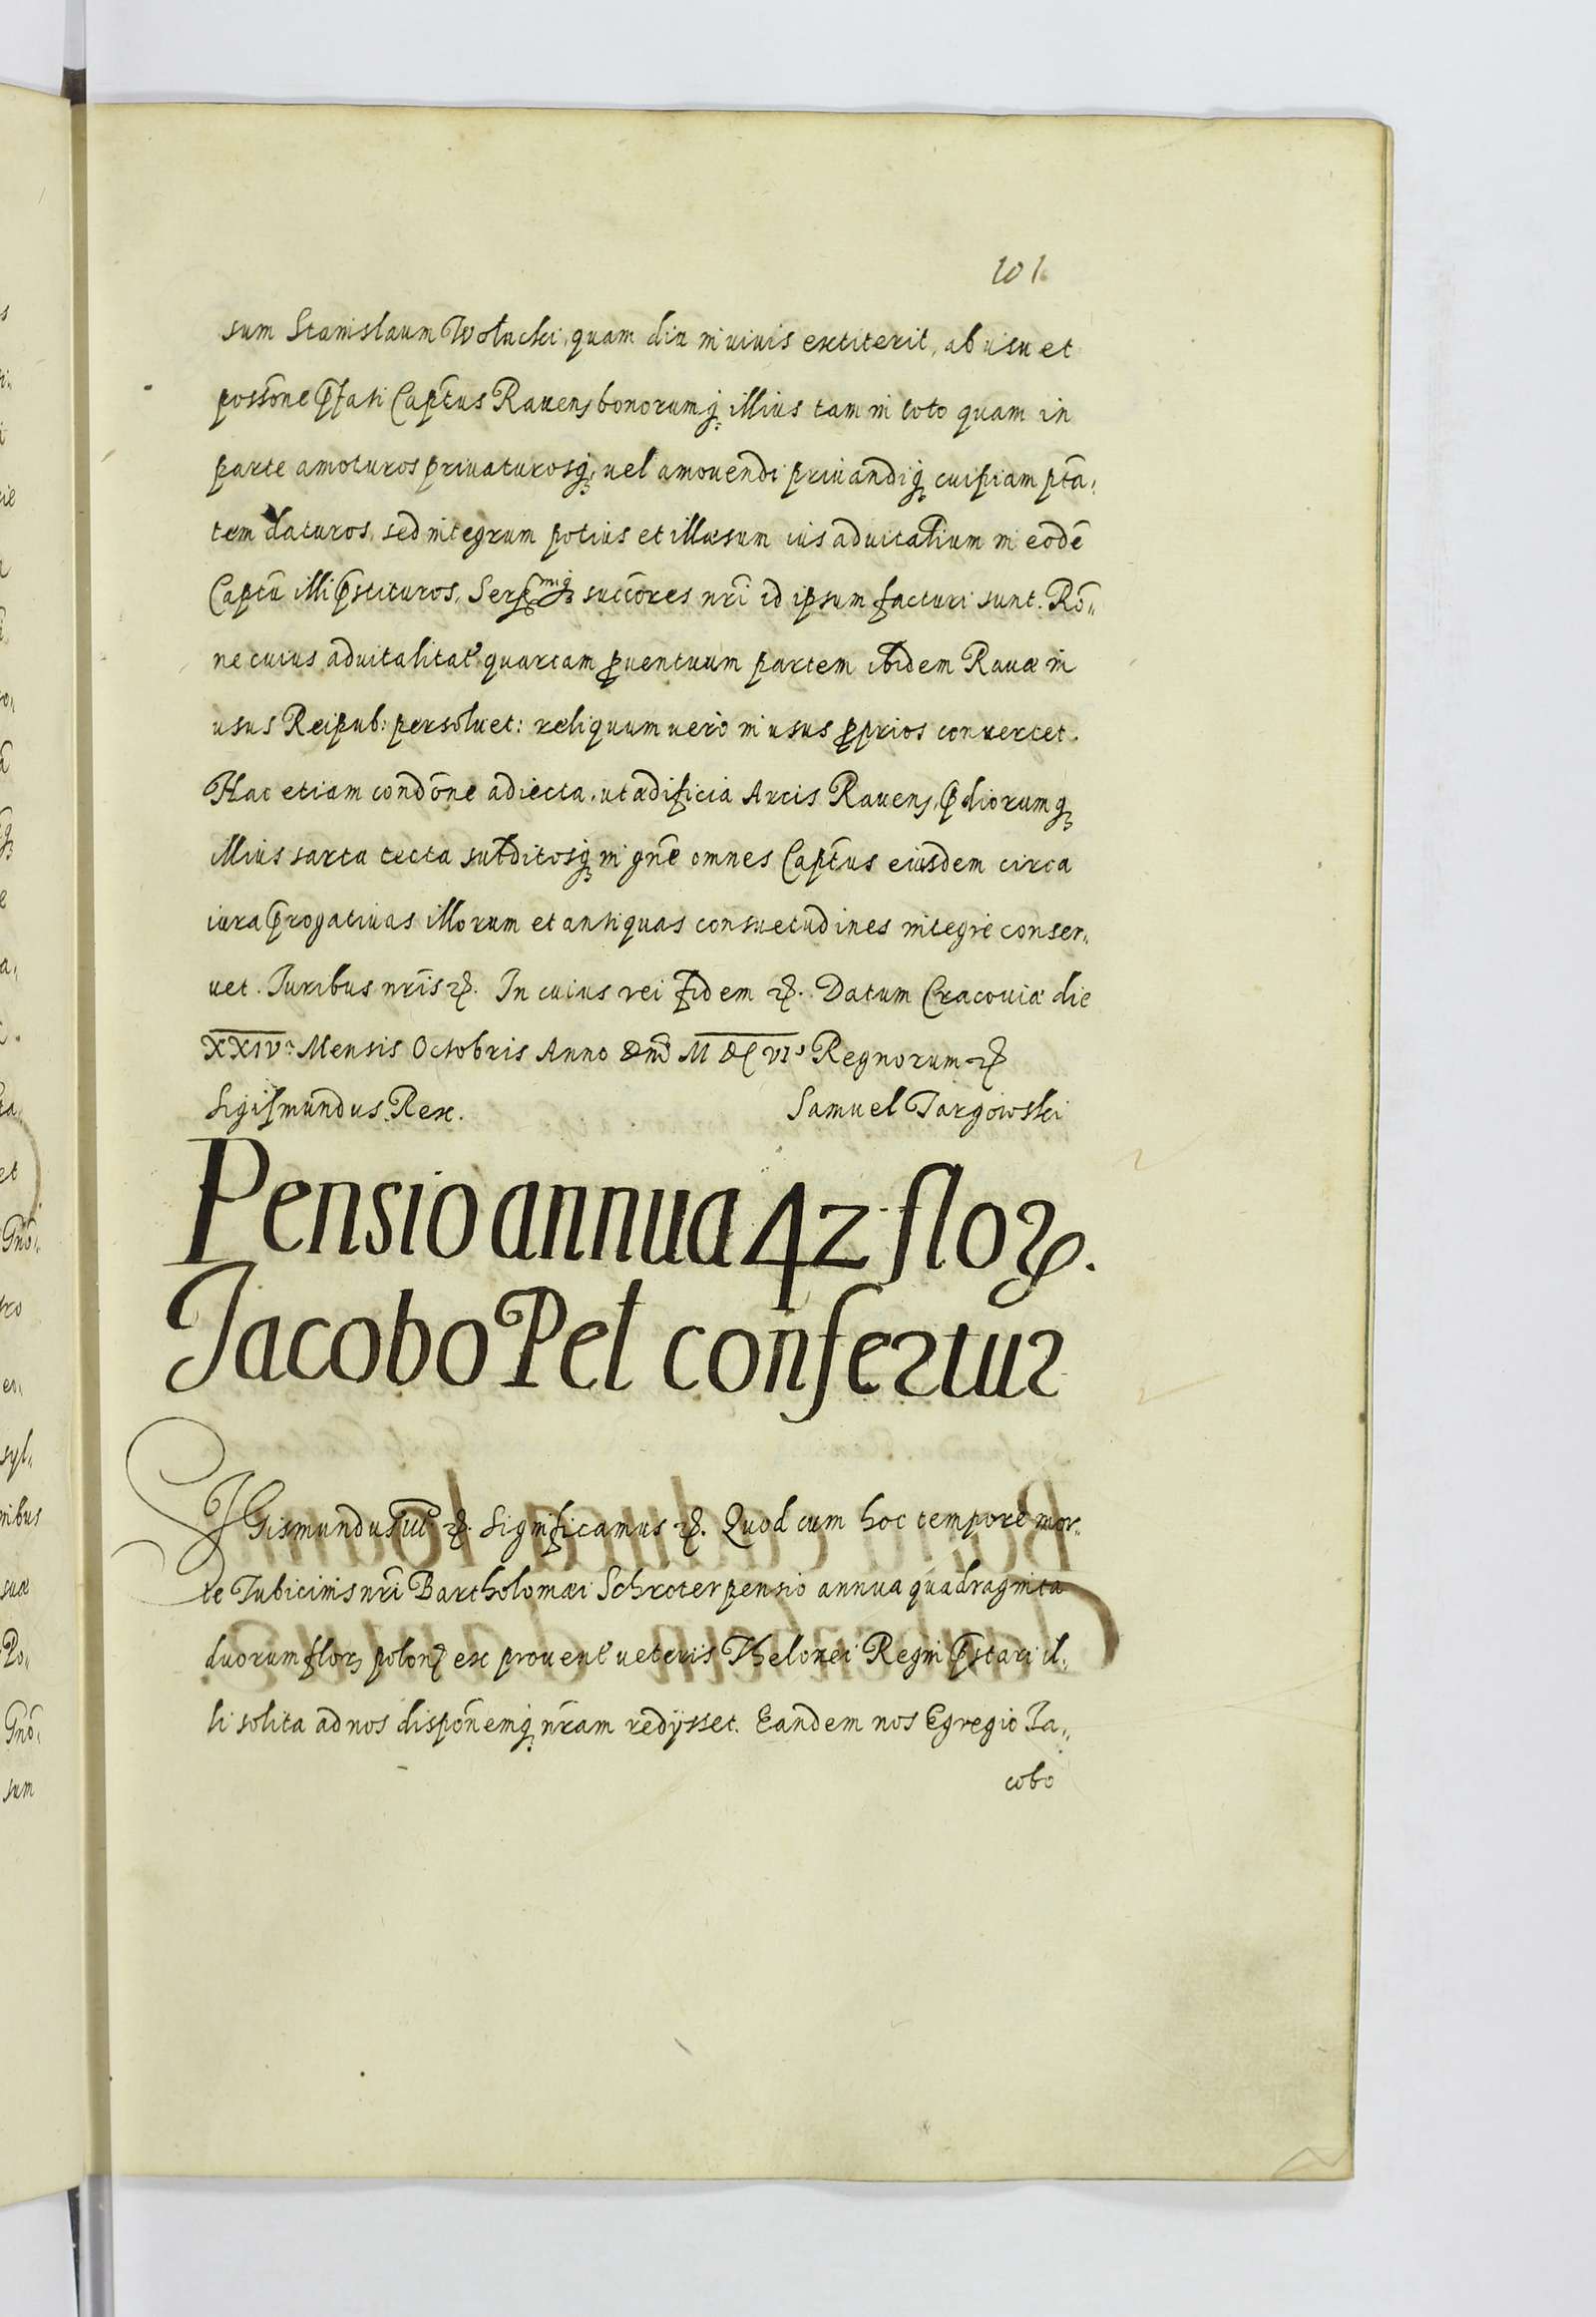 101
sum Stanislaum Wołucki, quam diu in vivis extiterit, ab usu et
possõne p̃fati Capt̃us Ravens, bonorumq̨ illius tam in toto quam in
parte amoturos privaturosq̨, vel amovendi privandiq̨ cuipiam pt̃a,,
tem daturos, sed integrum potius et illæsum ius advitalium in eodẽ
Capt̃u illi p̃stituros, succ̃ores nr̃i id ipsum facturi sunt. Rõ,,
ne cuius advitalitat' quartam ꝓventuum partem ibidem Ravæ in
usus Reipub: persolvet: reliquum vero in usus ꝓprios convertet.
Hac etiam condõne adiecta, ut ædificia Arcis Ravens, p̃diorumq̨
illius sarta tecta subditosq̨ in gñe omnes Capt̃us eiusdem circa
iura p̃rogativas illorum et antiquas consuetudines integre conser,,
vet. Iuribus nr̃is ꝛc. In cuius rei fidem ꝛc. Datum Cracoviæ die
XXIV.ª Mensis Octobris Anno Dnĩ M DC VI.º Regnorum ꝛc
Sigismundus Rex. Samuel Targowski
Pensio annua 42 floꝝ.
Jacobo Pel confertur
SIGismundus III.º ꝛc. Significamus ꝛc. Quod cum hoc tempore mor,,
te Tubicinis nr̃i Bartholomæi Schroter pensio annua quadraginta
duorum flor, polon, ex provent' veteris Thelonei Regni p̃stari il,,
li solita ad nos dispoñemq̨ nr̃am redijsset. Eandem nos Egregio Ia,,
cobo